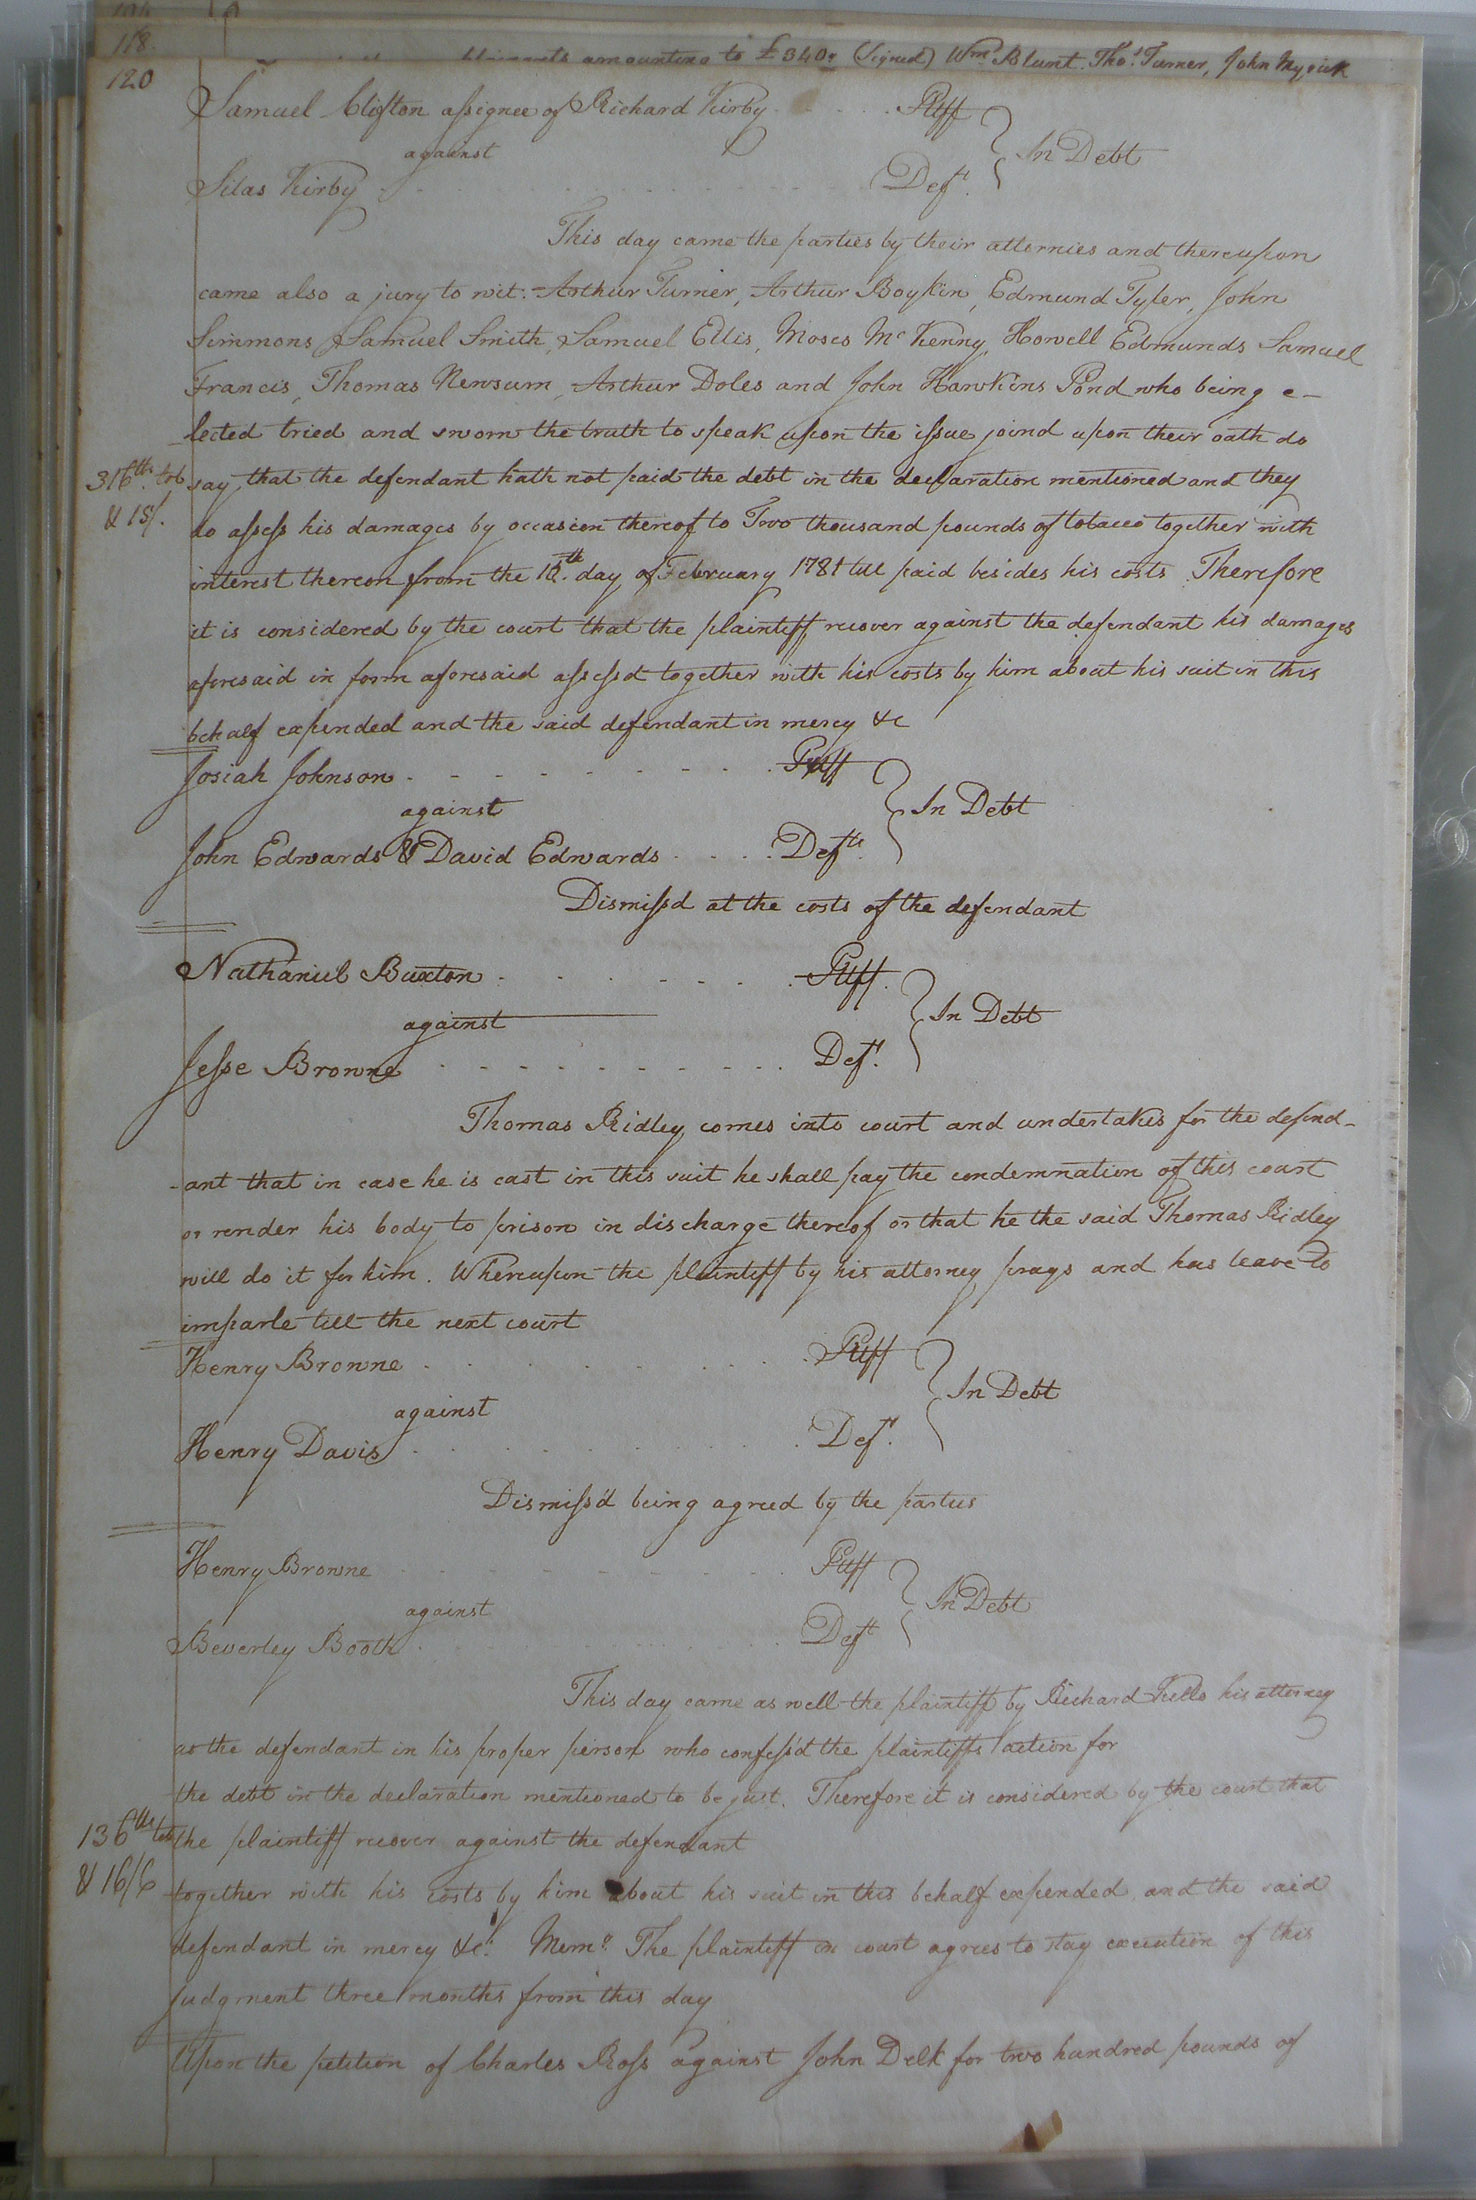 118.
amounting to £340: (Signed) Wm. Blunt. Thos. Turner, John Myrick
120
Samuel Clifton assignee of Richard Kirby . . . . Pltff
against
In Debt
Silas Kirby . . . . . . . . . . . Deft.
This day came the parties by their attornies and thereupon
came also a jury to wit. Arthur Turner, Arthur Boykin, Edmund Tyler, John
Simmons, Samuel Smith, Samuel Ellis, Moses McKenny, Howell Edmunds Samuel
Francis, Thomas Newsum, Arthur Doles and John Hawkins Pond who being e-
lected tried and sworn the truth to speak upon the issue joind upon their oath do
316th. tob
say, that the defendant hath not paid the debt in the declaration mentioned and they
& 15/.
do assess his damages by occasion thereof to Two thousand pounds of tobacco together with
interest thereon from the day of February 1781 till paid besides his costs Therefore
it is considered by the court that the plaintiff recover against the defendant his damages
aforesaid in form aforesaid assess'd together with his costs by him about his suit in this
behalf expended and the said defendant in mercy &c
Josiah Johnson . . . . . . . . . . Pltff
against
In Debt
John Edwards & David Edwards . . . . Defts.
Dismiss'd at the costs of the defendant
Nathaniel Buxton . . . . . . . Pltff.
against
In Debt
Jesse Browne . . . . . . . . . . . Deft.
Thomas Ridley comes into court and undertakes for the defend-
-ant that in case he is cast in this suit he shall pay the condemnation of this court
or render his body to prison in discharge thereof or that he the said Thomas Ridley
will do it for him. Whereupon the plaintiff by his attorney prays and has leave to
imparle till the next court
Henry Browne . . . . . . . . . Pltff
against
In Debt
Henry Davis . . . . . . . . . Deft.
Dismiss'd being agreed by the parties
Henry Browne . . . . . . . . . Pltff
against
In Debt
Beverley Booth . . . . . . . . . . Deft
This day came as well the plaintiff by Richard Kello his attorney
as the defendant in his proper person who confess'd the plaintiffs action for
the debt in the declaration mentioned to be just. Therefore it is considered by the court that
136th tob
the plaintiff recover against the defendant
& 16/6
together with his costs by him about his suit in this behalf expended, and the said
defendant in mercy &c. Memo. The plaintiff in court agrees to stay execution of this
judgment three months from this day
Upon the petition of Charles Ross against John Delk for two hundred pounds of